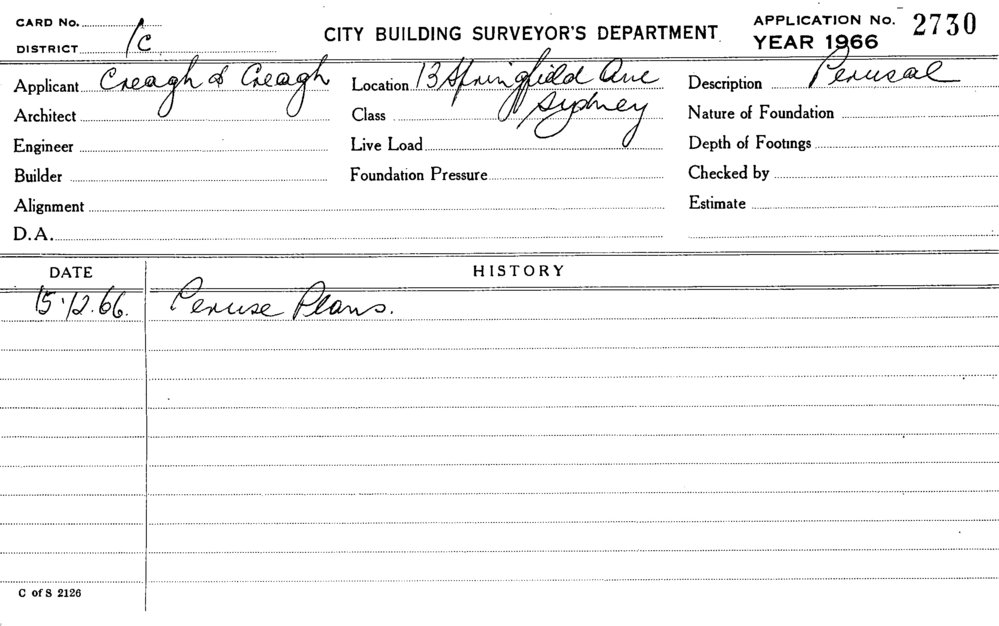 CARD No.
DISTRICT 1C
CITY BUILDING SURVEYOR'S DEPARTMENT
APPLICATION No. 2730
YEAR 1966
Applicant Creagh & Creagh
Location 13 Springfield Ave
Sydney
Description Perusal
Architect
Class
Nature of Foundation
Engineer
Live Load
Depth of Footings
Builder
Foundation Pressure
Checked by
Alignment
Estimate
D.A.
DATE
HISTORY
15.12.66. Peruse Plans.
C of S 2126